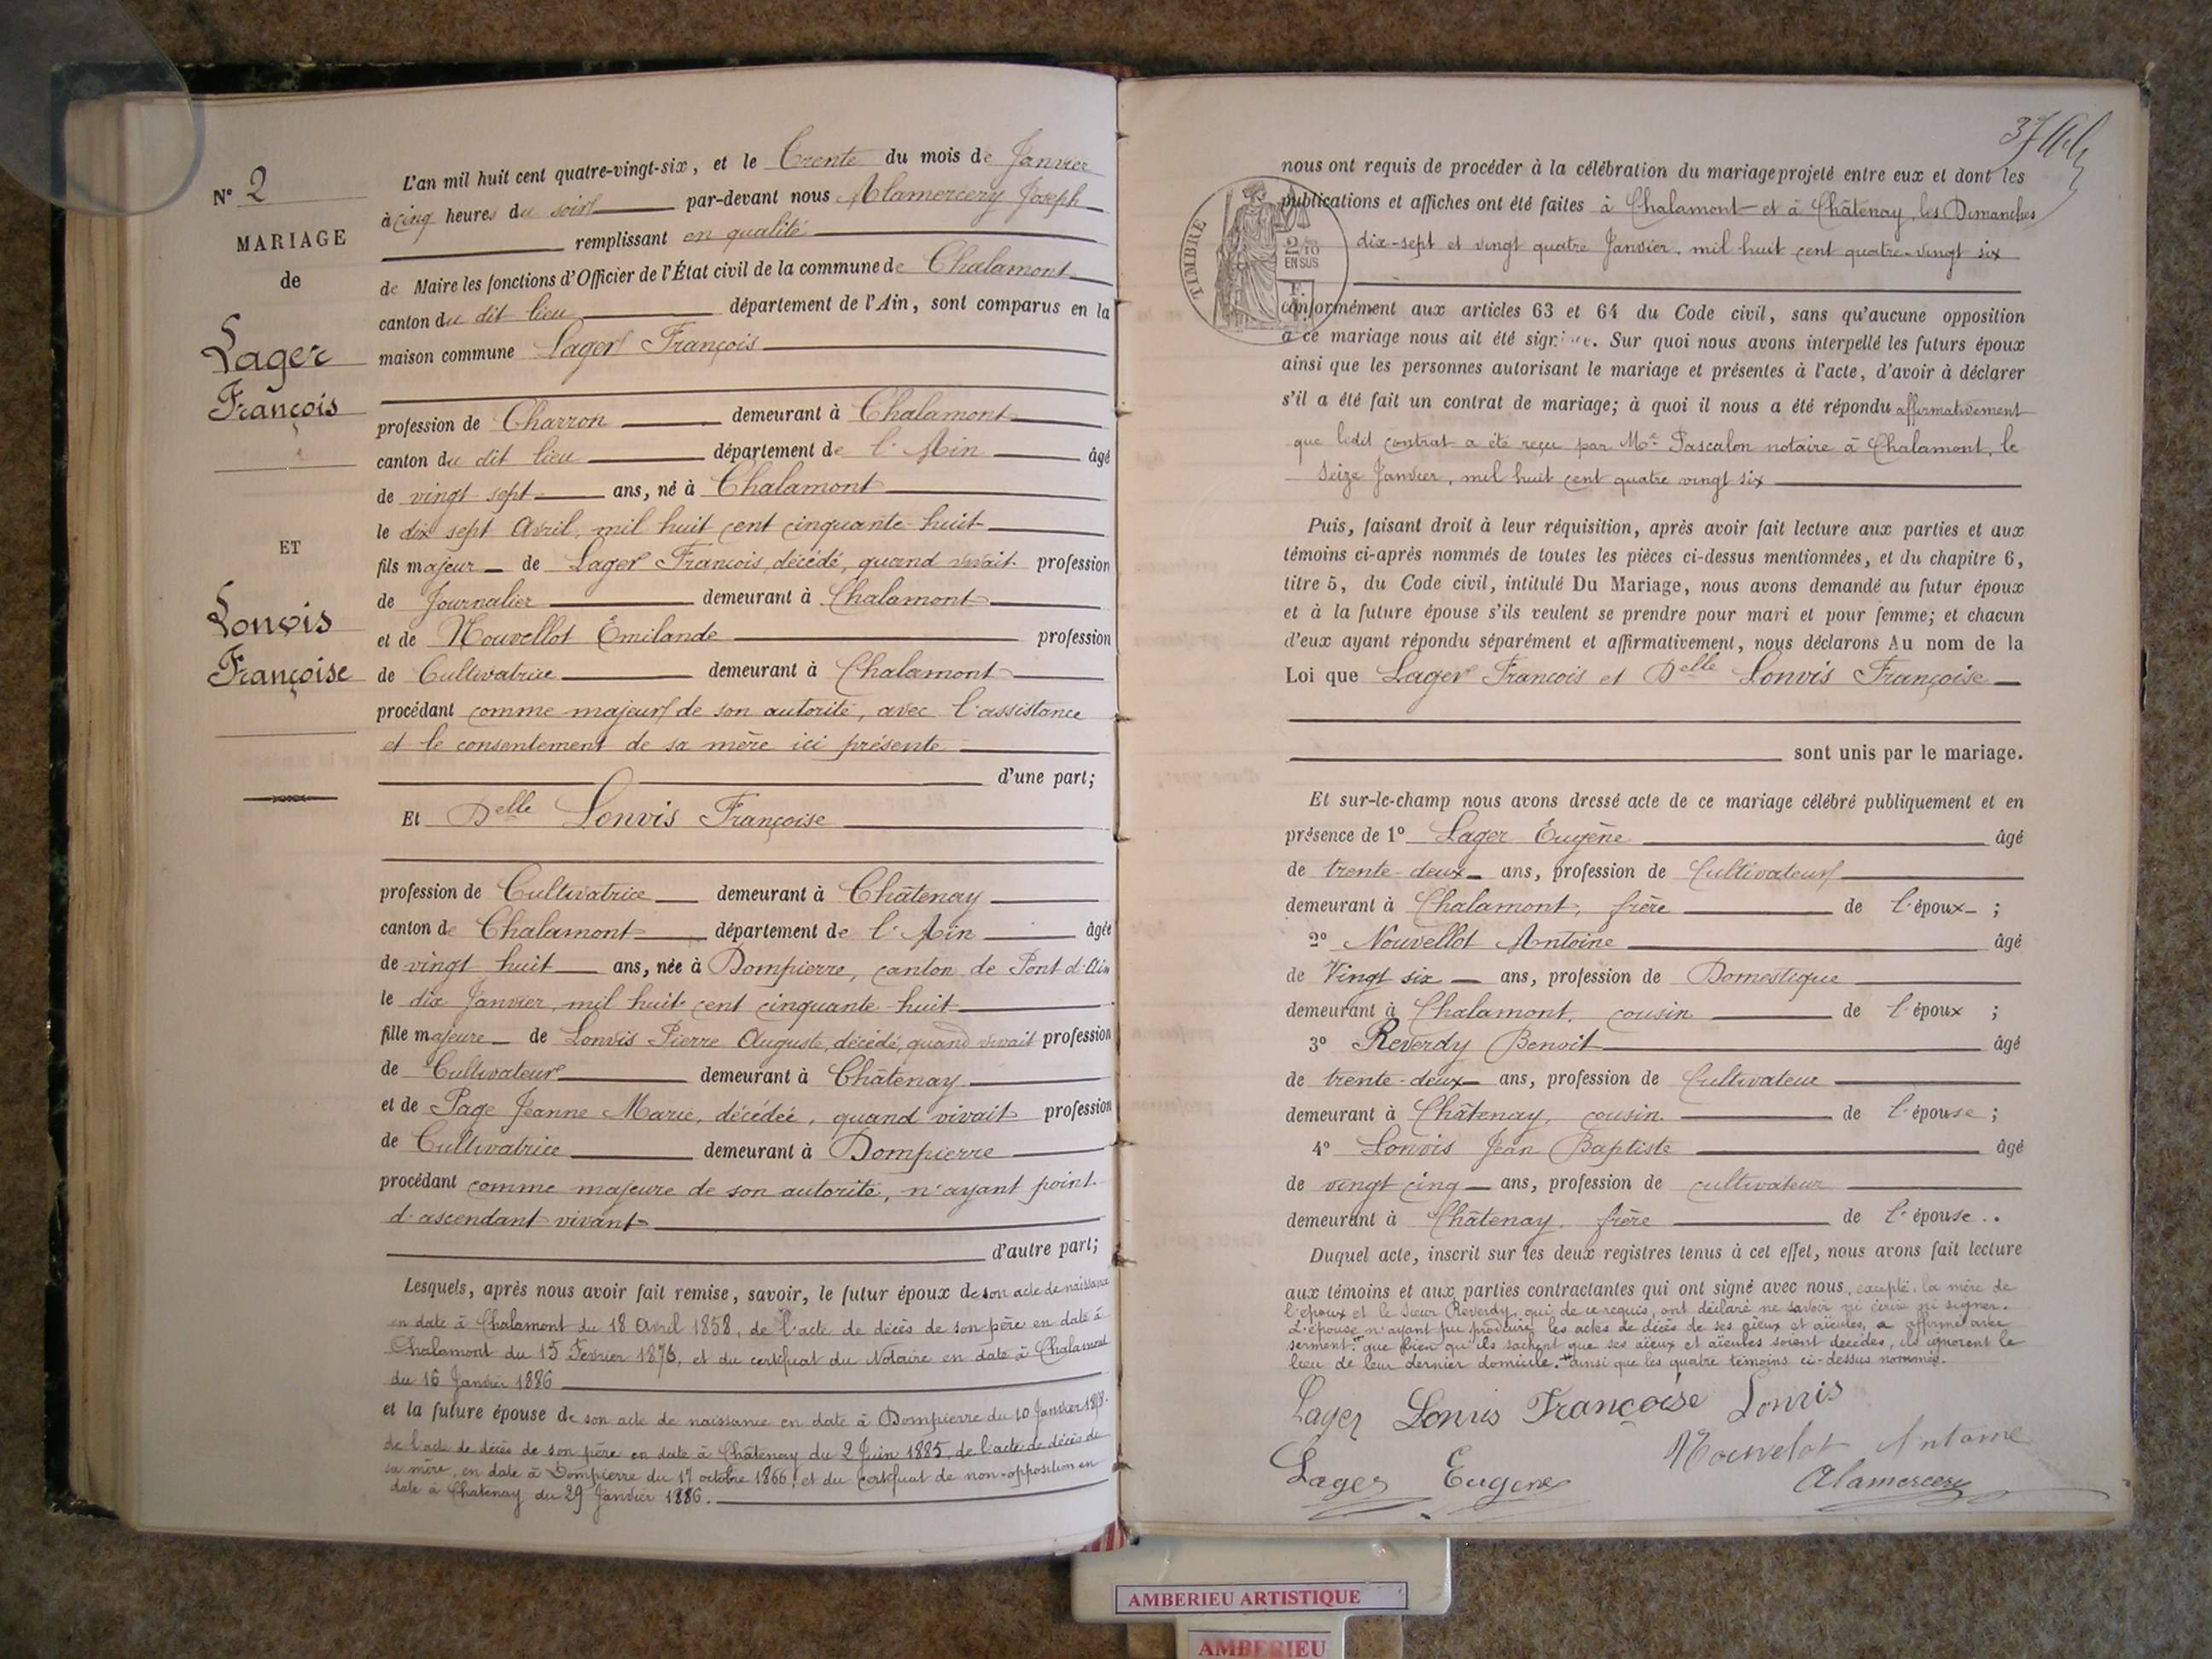 N° 2
MARIAGE
de
Lager
François
ET
Lonvis
Françoise
L'an mil huit cent quatre-vingt-six, et le Trente du mois de Janvier
à cinq heures du soir par-devant nous Alamercery Joseph
remplissant en qualité
de Maire les fonctions d'Officier de l'État civil de la commune de Chalamont
canton du dit lieu département de l'Ain, sont comparus en la
maison commune Lager François
profession de Charron demeurant à Chalamont
canton du dit lieu département de l'Ain âgé
de vingt sept ans, né à Chalamont
le dix sept Avril, mil huit cent cinquante-huit
fils majeur de Lager Francois, décédé, quand vivait profession
de Journalier demeurant à Chalamont
et de Nouvellot Émilande profession
de Cultivatrice demeurant à Chalamont
procédant comme majeur de son autorité, avec l'assistance
et le consentement de sa mère ici présente
d'une part;
Et Delle Lonvis Françoise
profession de Cultivatrice demeurant à Châtenay
canton de Chalamont département de l'Ain âgée
de vingt huit ans, née à Dompierre, canton de Pont d'Ain
le dix Janvier, mil huit cent cinquante-huit
fille majeure de Lonvis Pierre Auguste, décédé, quand vivait profession
de Cultivateur demeurant à Châtenay
et de Page Jeanne Marie, décédée, quand vivait profession
de Cultivatrice demeurant à Dompierre
procédant comme majeure de son autorité, n'ayant point
d'ascendant vivant
d'autre part;
Lesquels, après nous avoir fait remise, savoir, le futur époux de son acte de naissance
en date à Chalamont du 18 avril 1858, de l'acte de décès de son père en date à
Chalamont du 15 Fevrier 1876, et du certificat du Notaire en date à Chalamont
du 16 Janvier 1886
et la future épouse de son acte de naissance en date à Dompierre du 10 Janvier 1858.
de l'acte de décès de son père en date à Châtenay du 2 Juin 1885, de l'acte de décès de
sa mère, en date à Dompierre du 17 octobre 1866, et du certificat de non-opposition en
date à Chatenay du 29 Janvier 1886.
37
nous ont requis de procéder à la célébration du mariage projeté entre eux et dont les
publications et affiches ont été faites à Chalamont et à Châtenay, les Dimanches
dix-sept et vingt quatre Janvier, mil huit cent quatre-vingt six
TIMBRE
2/10
EN SUS
conformément aux articles 63 et 64 du Code civil, sans qu'aucune opposition
à ce mariage nous ait été signifiée. Sur quoi nous avons interpellé les futurs époux
ainsi que les personnes autorisant le mariage et présentes à l'acte, d'avoir à déclarer
s'il a été fait un contrat de mariage; à quoi il nous a été répondu affirmativement
que ledit contrat a été reçu par Me Pascalon notaire à Chalamont, le
Seize Janvier, mil huit cent quatre vingt six
Puis, faisant droit à leur réquisition, après avoir fait lecture aux parties et aux
témoins ci-après nommés de toutes les pièces ci-dessus mentionnées, et du chapitre 6,
titre 5, du Code civil, intitulé Du Mariage, nous avons demandé au futur époux
et à la future épouse s'ils veulent se prendre pour mari et pour femme; et chacun
d'eux ayant répondu séparément et affirmativement, nous déclarons Au nom de la
Loi que Lager Francois et Delle Lonvis Françoise
sont unis par le mariage.
Et sur-le-champ nous avons dressé acte de ce mariage célébré publiquement et en
présence de 1° Lager Eugène âgé
de trente-deux ans, profession de Cultivateur
demeurant à Chalamont, frère de l'époux ;
2° Nouvellot Antoine âgé
de Vingt six ans, profession de Domestique
demeurant à Chalamont, cousin de l'époux ;
3° Reverdy Benoit âgé
de trente-deux ans, profession de Cultivateur
demeurant à Châtenay, cousin de l'épouse ;
4° Lonvis Jean Baptiste âgé
de vingt cinq ans, profession de cultivateur
demeurant à Châtenay, frère de l'épouse..
Duquel acte, inscrit sur les deux registres tenus à cet effet, nous avons fait lecture
aux témoins et aux parties contractantes qui ont signé avec nous, excepté, la mère de
l'époux et le Sieur Reverdy, qui de ce requis, ont déclaré ne savoir ni écrire ni signer.
L'épouse n'ayant pu produire les actes de décès de ses aïeux et aïeules, a affirmé avec
serment que bien qu'ils sachent que ses aïeux et aïeules soient décédés, ils ignorent le
lieu de leur dernier domicile. ainsi que les quatre témoins ci-dessus nommés.
Lager Lonvis Françoise Lonvis
Lager Eugene Nouvelot Antoine
Alamercery
AMBERIEU ARTISTIQUE
AMBERIEU